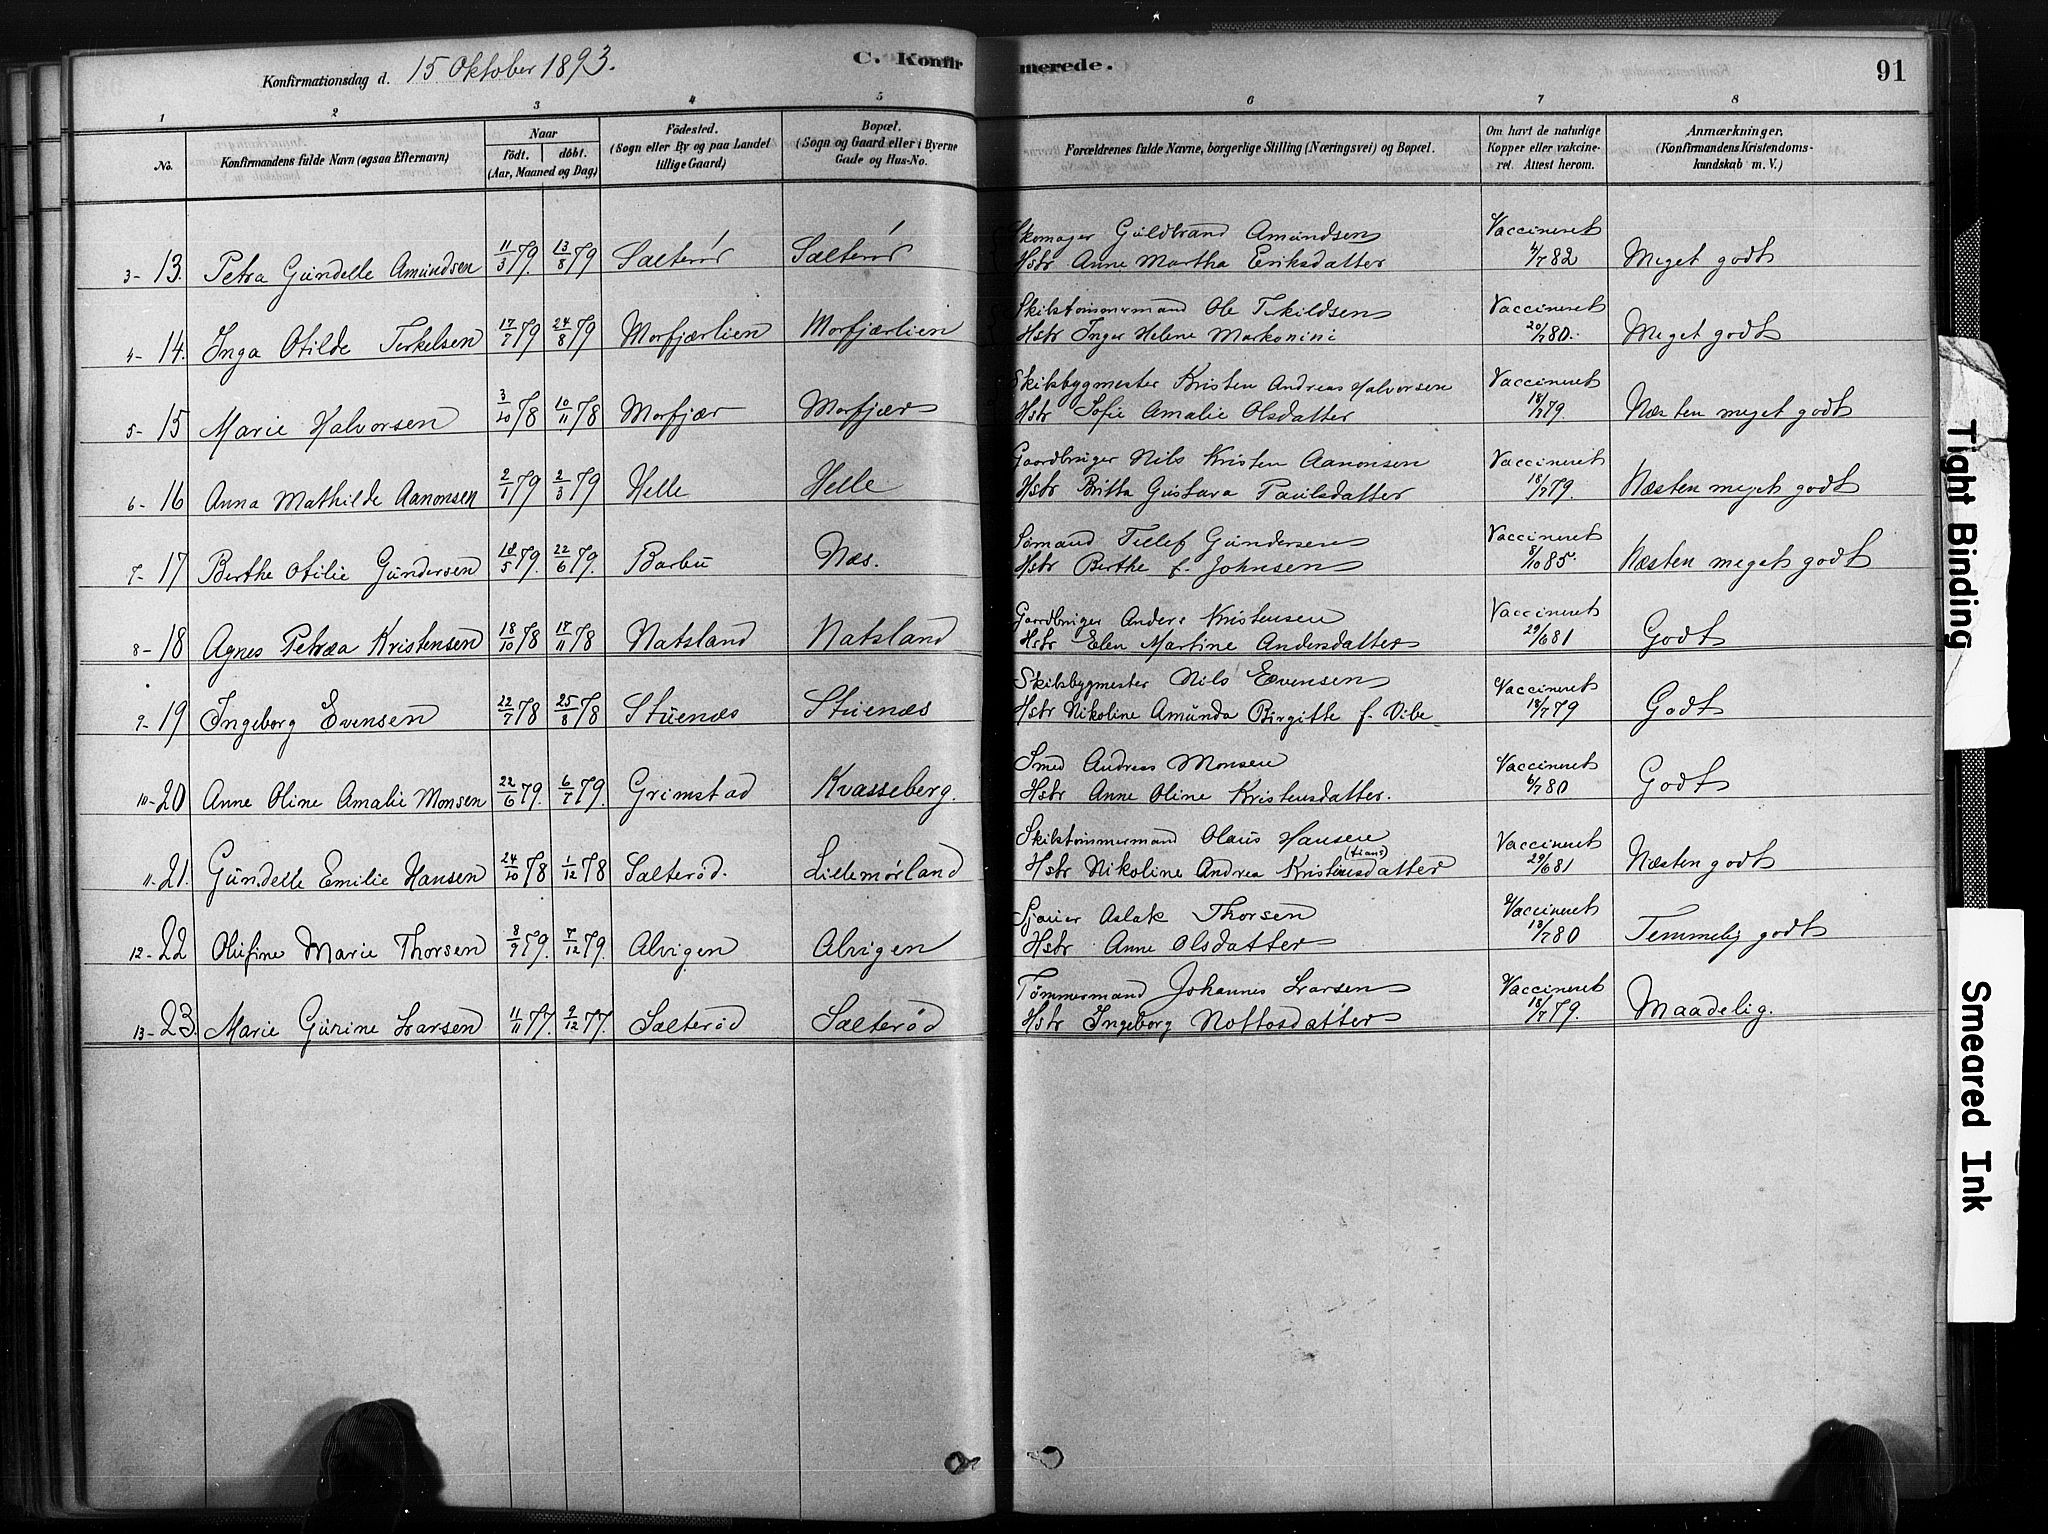 Konfirmationsdag d. 15 Oktober 1893.
C. Konfirmerede.
91
1 2 3 4 5 6 7 8
No.
Konfirmandens fulde Navn (ogsaa Efternavn)
Naar
födt. döbt.
(Aar, Maaned og Dag)
Födested.
(Sogn eller By og paa Landet
tillige Gaard)
Bopæl.
(Sogn og Gaard eller i Byerne
Gade og Hus-No.
Forældrenes fulde Navne, borgerlige Stilling (Næringsvei) og Bopæl.
Om havt de naturlige
Kopper eller vakcine-
ret. Attest herom.
Anmærkninger.
(Konfirmandens Kristendoms-
kundskab m. V.)
Skomager Guldbrand Amundsen Vaccineret
3- 13. Petra Gundelle Amundsen 11/3 79 13/8 79 Salterör Salterör Hstr Anne Martha Eriksdatter 4/7 82 Meget godt
Skibstømmermand Ole Terkildsen Vaccineret
4- 14. Inga Otilde Terkelsen 17/7 79 24/8 79 Morfjærlien Morfjærlien Hstr Inger Helene Markonini 20/7 80. Meget godt
Skibsbygmester Kristen Andreas Halvorsen Vaccineret
5- 15 Marie Halvorsen 3/10 78 10/11 78 Morfjær Morfjær Hstr Sofie Amalie Olsdatter 18/7 79. Næsten meget godt
Gaardbruger Nils Kristen Aanonsen Vaccineret
6- 16 Anna Mathilde Aanonsen 2/1 79 2/3 79 Helle Helle Hstr Britta Gustava Paulsdatter 18/7 79. Næsten meget godt
Sømand Tellef Gundersen Vaccineret
7- 17 Berthe Otilie Gundersen 18/5 79. 22/6 79. Barbu Næs. Hstr Berthe f. Johnsen 8/10 85. Næsten meget godt
Gaardbruger Anders Kristensen Vaccineret
8- 18 Agnes Petræa Kristensen 18/10 78 17/11 78 Natsland Natsland Hstr Elen Martine Andersdatter 29/6 81 Godt
Skibsbygmester Nils Evensen Vaccineret
9- 19 Ingeborg Evensen 22/7 78 25/8 78 Stuenæs Stuenæs Hstr Nikoline Amunda Birgitte f. Vibe 18/7 79 Godt
Smed Andreas Monsen Vaccineret
10- 20 Anne Oline Amalie Monsen 22/6 79. 6/7 79. Grimstad Kvasseberg. Hstr Anne Oline Kristensdatter. 6/7 80 Godt
Skibstømmermand Olaus Hansen Vaccineret
(tians)
11- 21. Gundelle Emilie Hansen 24/10 78 1/12 78 Salterød. Lillemørland Hstr Nikoline Andrea Kristiansdatter 29/6 81 Næsten godt
Sjauer Aslak Thorsen Vaccineret
12- 22 Olufine Marie Thorsen 8/9 79. 7/12 79. Alvigen Alvigen Hstr Anne Olsdatter 13/7 80 Temmelig godt
Tømmermand Johannes Larsen Vaccineret
13- 23. Marie Gurine Larsen 11/11 77. 9/12 77. Salterød Salterød Hstr Ingeborg Nottosdatter 18/7 79 Maadelig.
Tight Binding
Smeared Ink